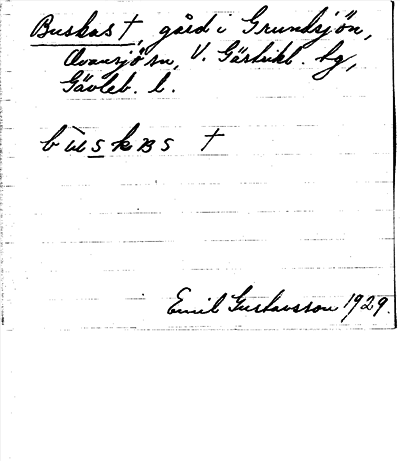 Buskas †, gård i Grundsjön,
Ovansjö sn, V. Gästrikl. tg,
Gävleb. l.
b u s k a s †
Emil Gustavsson 1929.